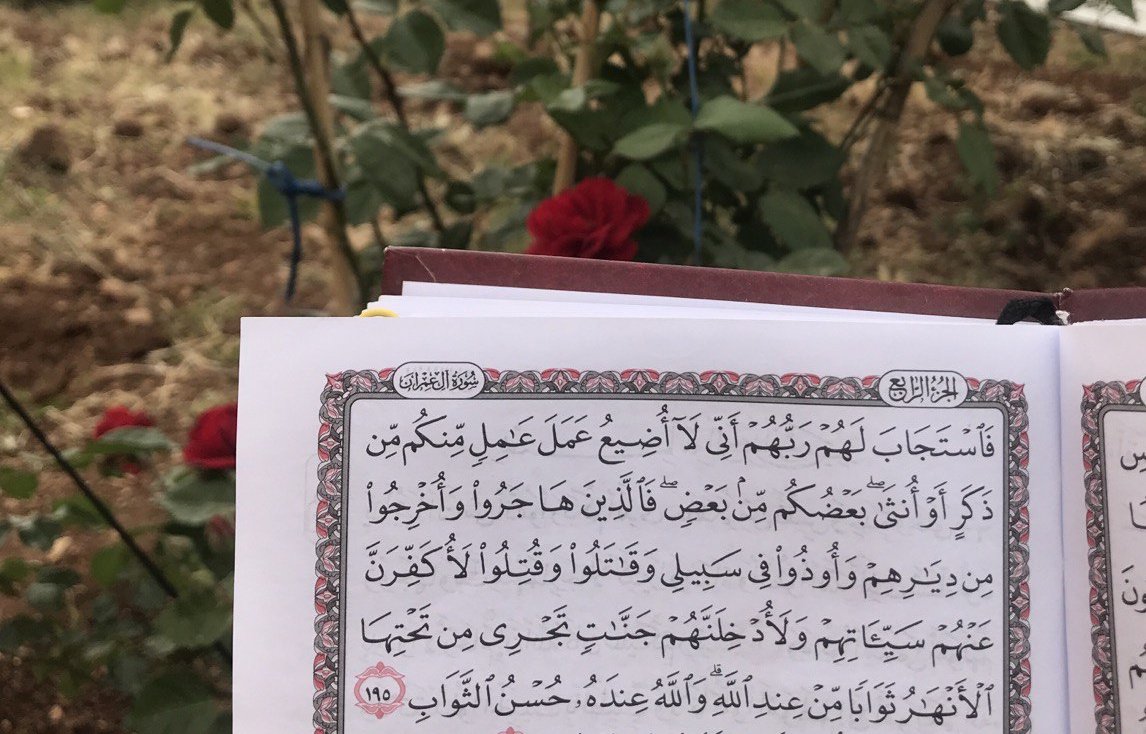 سُورَةُ آلِ عِمْرَانَ
الجُزْءُ الرَّابِعُ
فَٱسْتَجَابَ لَهُمْ رَبُّهُمْ أَنِّى لَآ أُضِيعُ عَمَلَ عَٰمِلٍ مِّنكُم مِّن
ذَكَرٍ أَوْ أُنثَىٰ ۖ بَعْضُكُم مِّنۢ بَعْضٍ ۖ فَٱلَّذِينَ هَاجَرُوا۟ وَأُخْرِجُوا۟
مِن دِيَٰرِهِمْ وَأُوذُوا۟ فِى سَبِيلِى وَقَٰتَلُوا۟ وَقُتِلُوا۟ لَأُكَفِّرَنَّ
عَنْهُمْ سَيِّـَٔاتِهِمْ وَلَأُدْخِلَنَّهُمْ جَنَّٰتٍ تَجْرِى مِن تَحْتِهَا
ٱلْأَنْهَٰرُ ثَوَابًا مِّنْ عِندِ ٱللَّهِ ۗ وَٱللَّهُ عِندَهُۥ حُسْنُ ٱلثَّوَابِ ١٩٥